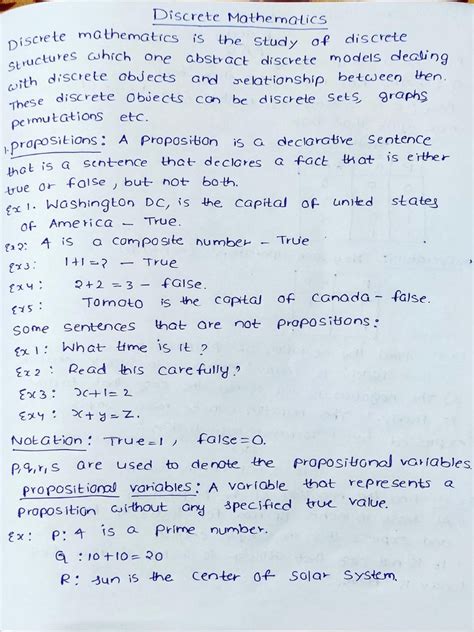 Discrete Mathematics
Discrete mathematics is the study of discrete
structures which one abstract discrete models dealing
with discrete objects and relationship between then.
These discrete objects can be discrete sets, graphs,
permutations etc.
1.propositions: A proposition is a declarative sentence
that is a sentence that declares a fact that is either
true or false, but not both.
Ex 1. Washington DC, is the capital of united states
of America – True.
Ex2: 4 is a composite number – True
Ex3: 1+1=2 – True
Ex4: 2+2=3 – false.
Ex5: Tomoto is the capital of canada – false.
some sentences that are not propositions:
Ex 1: What time is it?
Ex2: Read this carefully?
Ex3: x+1=2
Ex4: x+y=z.
Notation: True=1, false=0.
p,q,r,s are used to denote the propositional variables.
propositional variables: A variable that represents a
proposition without any specified true value.
Ex: P: 4 is a prime number.
Q: 10+10=20
R: sun is the center of solar system.